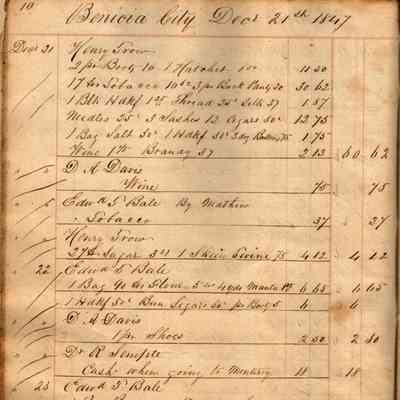 10
Benicia City Decr 21st 1847
Decr 21 Henry Trow
2 pr Boots 10 1 Hatchet 1.50 11.50
17 lbs Tobacco 3 pr Buck Pants 30 62
1 Blk Hdkf Thread 25 Salts 37 1.87
Needles 25 3 Sashes 12 Cegars 50 12 75
1 Bag Salt 50 1 Hdkf 50 3 dz Buttons 75 1.75
Wine Brandy 37 2.13 60 62
D A Davis
Wine 75 75
Edwd T Bale By Mathew
Tobacco 37 37
Henry Trow
Sugar 1 Skein Twine 75 4 12 4 12
22 Edwd T Bale
1 Bag 40 lbs Flour 4 yds Manta 6 65 6 65
1 Hdkf 50 Bun Segars 50 pr Boots 5 6 6
D A Davis
1 pr Shoes 2 50 2 50
Dr R Semple
Cash when going to Monterey 18 18
23 Edwd T Bale